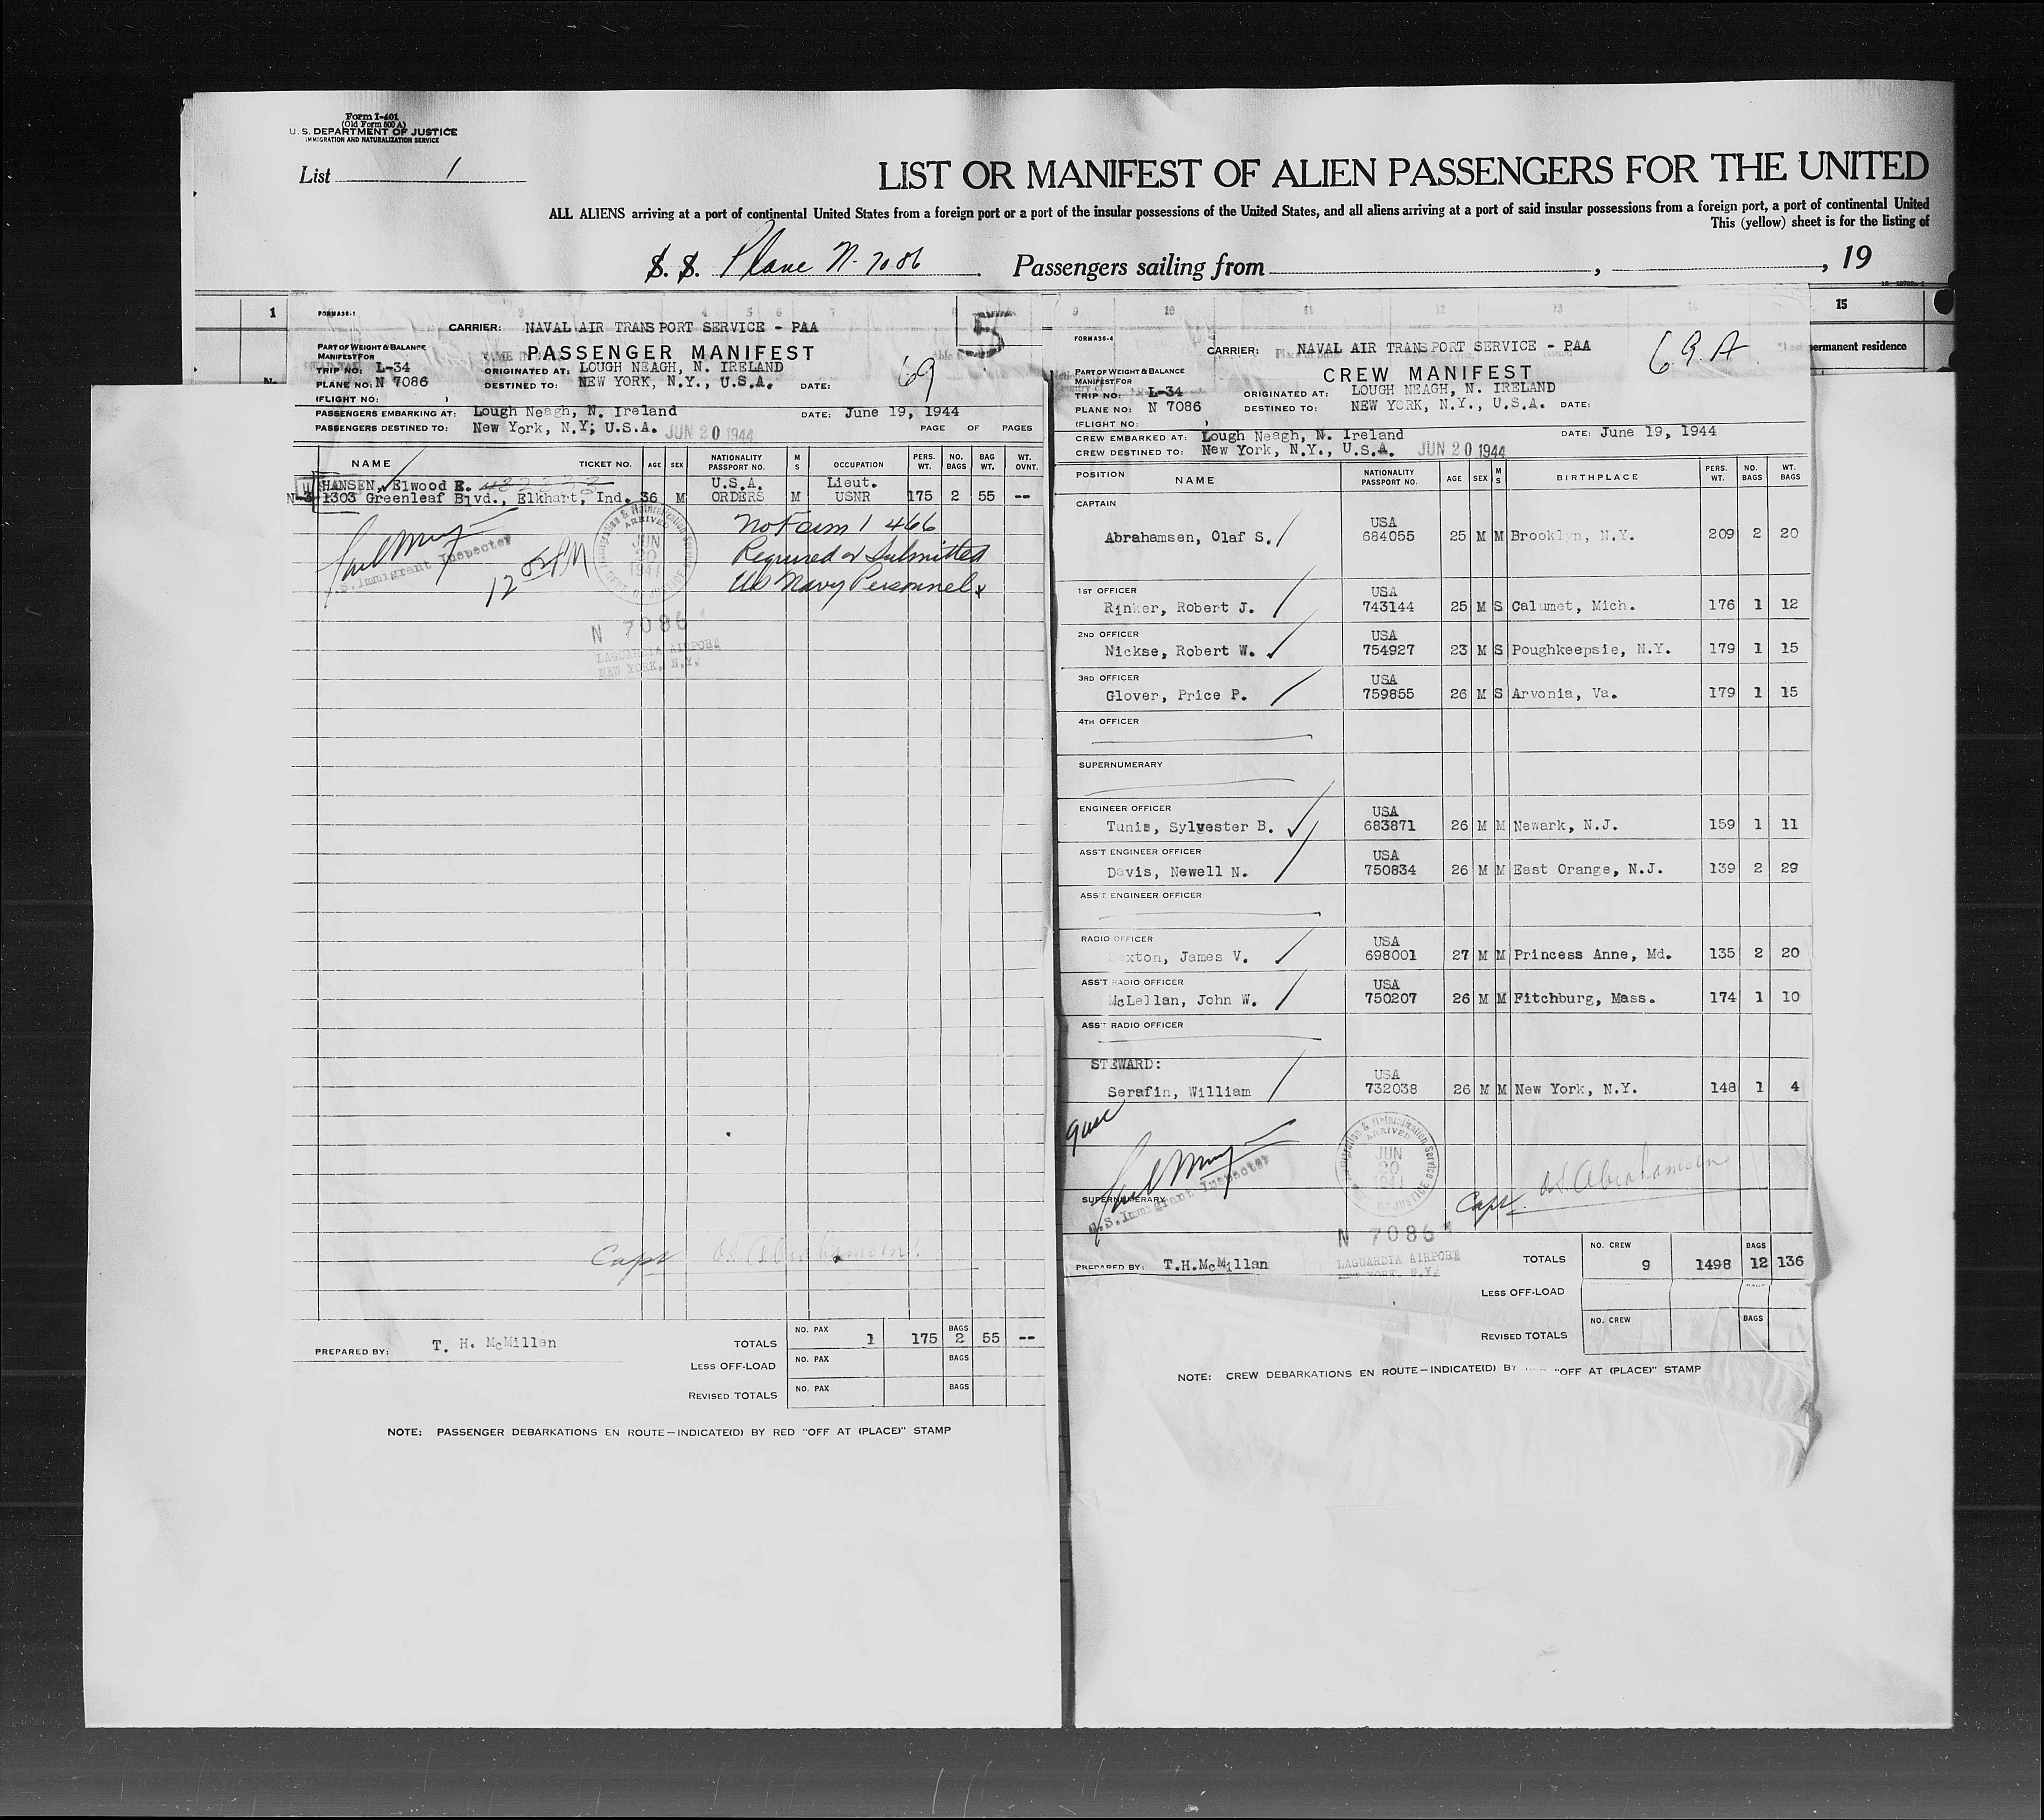 Form I-401
(Old Form 500 A)
U. S. DEPARTMENT OF JUSTICE
IMMIGRATION AND NATURALIZATION SERVICE
List 1
LIST OR MANIFEST OF ALIEN PASSENGERS FOR THE UNITED
ALL ALIENS arriving at a port of continental United States from a foreign port or a port of the insular possessions of the United States, and all aliens arriving at a port of said insular possessions from a foreign port, a port of continental United
This (yellow) sheet is for the listing of
S. S. Plane N-7086 Passengers sailing from , , 19
1
15
ermanent residence
FORM A36-1
5
CARRIER: NAVAL AIR TRANSPORT SERVICE - PAA
PART OF WEIGHT & BALANCE
MANIFEST FOR
PASSENGER MANIFEST
69
TRIP NO: L-34 ORIGINATED AT: LOUGH NEAGH, N. IRELAND
PLANE NO: N 7086 DESTINED TO: NEW YORK, N.Y., U.S.A. DATE:
(FLIGHT NO: )
PASSENGERS EMBARKING AT: Lough Neagh, N. Ireland DATE: June 19, 1944
PASSENGERS DESTINED TO: New York, N.Y; U.S.A. JUN 20 1944 PAGE OF PAGES
NAME TICKET NO. AGE SEX NATIONALITY PASSPORT NO. M S OCCUPATION PERS. WT. NO. BAGS BAG WT. WT. OVNT.
HANSEN, Elwood E. U.S.A. Lieut.
1303 Greenleaf Blvd., Elkhart, Ind. 36 M ORDERS M USNR 175 2 55 --
No Form I 466
Required or Submitted
US Navy Personnel
U.S. Immigrant Inspector
Immigration & Naturalization Service
ARRIVED
JUN
20
1944
N 7086
LAGUARDIA AIRPORT
NEW YORK, N.Y.
Capt O.S. Abrahamsen
PREPARED BY: T. H. McMillan
TOTALS NO. PAX 1 175 BAGS 2 55 --
LESS OFF-LOAD NO. PAX BAGS
REVISED TOTALS NO. PAX BAGS
NOTE: PASSENGER DEBARKATIONS EN ROUTE—INDICATE(D) BY RED "OFF AT (PLACE)" STAMP
FORM A36-4
69 A
CARRIER: NAVAL AIR TRANSPORT SERVICE - PAA
PART OF WEIGHT & BALANCE
MANIFEST FOR
CREW MANIFEST
TRIP NO: L-34 ORIGINATED AT: LOUGH NEAGH, N. IRELAND
PLANE NO: N 7086 DESTINED TO: NEW YORK, N.Y., U.S.A. DATE:
(FLIGHT NO: )
CREW EMBARKED AT: Lough Neagh, N. Ireland DATE: June 19, 1944
CREW DESTINED TO: New York, N.Y., U.S.A. JUN 20 1944
POSITION NAME NATIONALITY PASSPORT NO. AGE SEX M S BIRTHPLACE PERS. WT. NO. BAGS WT. BAGS
CAPTAIN
USA
Abrahamsen, Olaf S. 684055 25 M M Brooklyn, N.Y. 209 2 20
1ST OFFICER USA
Rinker, Robert J. 743144 25 M S Calumet, Mich. 176 1 12
2ND OFFICER USA
Nickse, Robert W. 754927 23 M S Poughkeepsie, N.Y. 179 1 15
3RD OFFICER USA
Glover, Price P. 759855 26 M S Arvonia, Va. 179 1 15
4TH OFFICER
SUPERNUMERARY
ENGINEER OFFICER USA
Tunis, Sylvester B. 683871 26 M M Newark, N.J. 159 1 11
ASS'T ENGINEER OFFICER USA
Davis, Newell N. 750834 26 M M East Orange, N.J. 139 2 29
ASS'T ENGINEER OFFICER
RADIO OFFICER USA
Sexton, James V. 698001 27 M M Princess Anne, Md. 135 2 20
ASS'T RADIO OFFICER USA
McLellan, John W. 750207 26 M M Fitchburg, Mass. 174 1 10
ASS'T RADIO OFFICER
STEWARD: USA
Serafin, William 732038 26 M M New York, N.Y. 148 1 4
Immigration & Naturalization Service
ARRIVED
JUN
20
1944
SUPERNUMERARY
U.S. Immigrant Inspector
Capt. O.S. Abrahamsen
N 7086
LAGUARDIA AIRPORT
NEW YORK, N.Y.
PREPARED BY: T.H.McMillan
TOTALS NO. CREW 9 1498 BAGS 12 136
LESS OFF-LOAD
REVISED TOTALS NO. CREW BAGS
NOTE: CREW DEBARKATIONS EN ROUTE—INDICATE(D) BY "OFF AT (PLACE)" STAMP